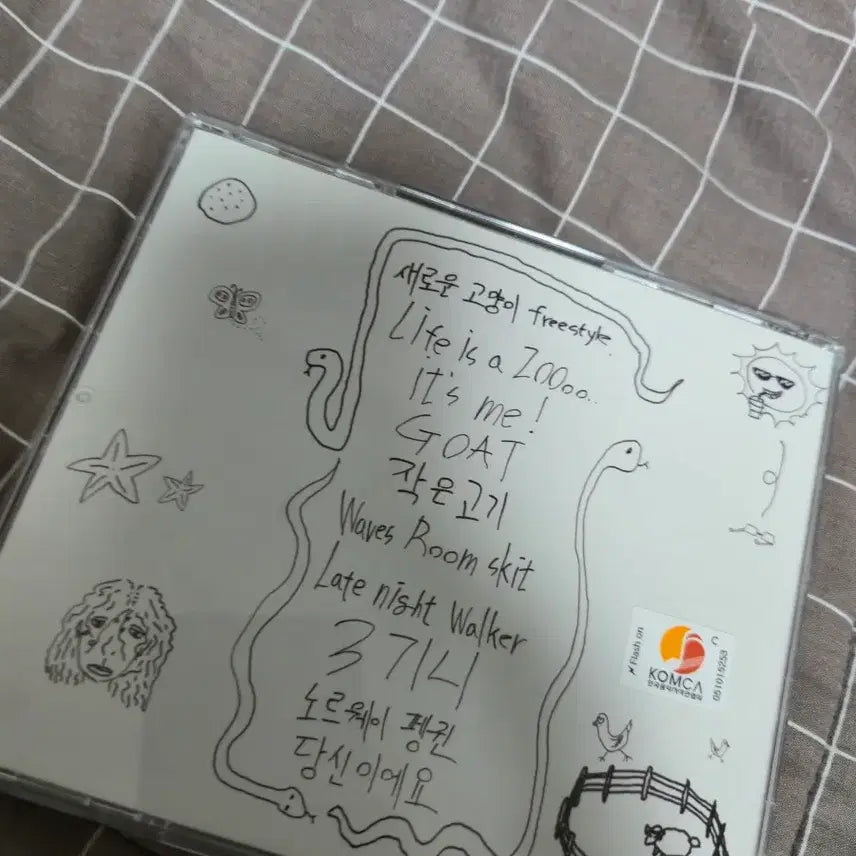 새로운 고양이 freestyle.
Life is a ZOOooo..
It's me!
GOAT
작은고기
Waves Room skit
Late night Walker
3기니
노르웨이 펭귄
당신이에요
✗ Flash on
C
051015253
KOMCA
한국음악저작권협회